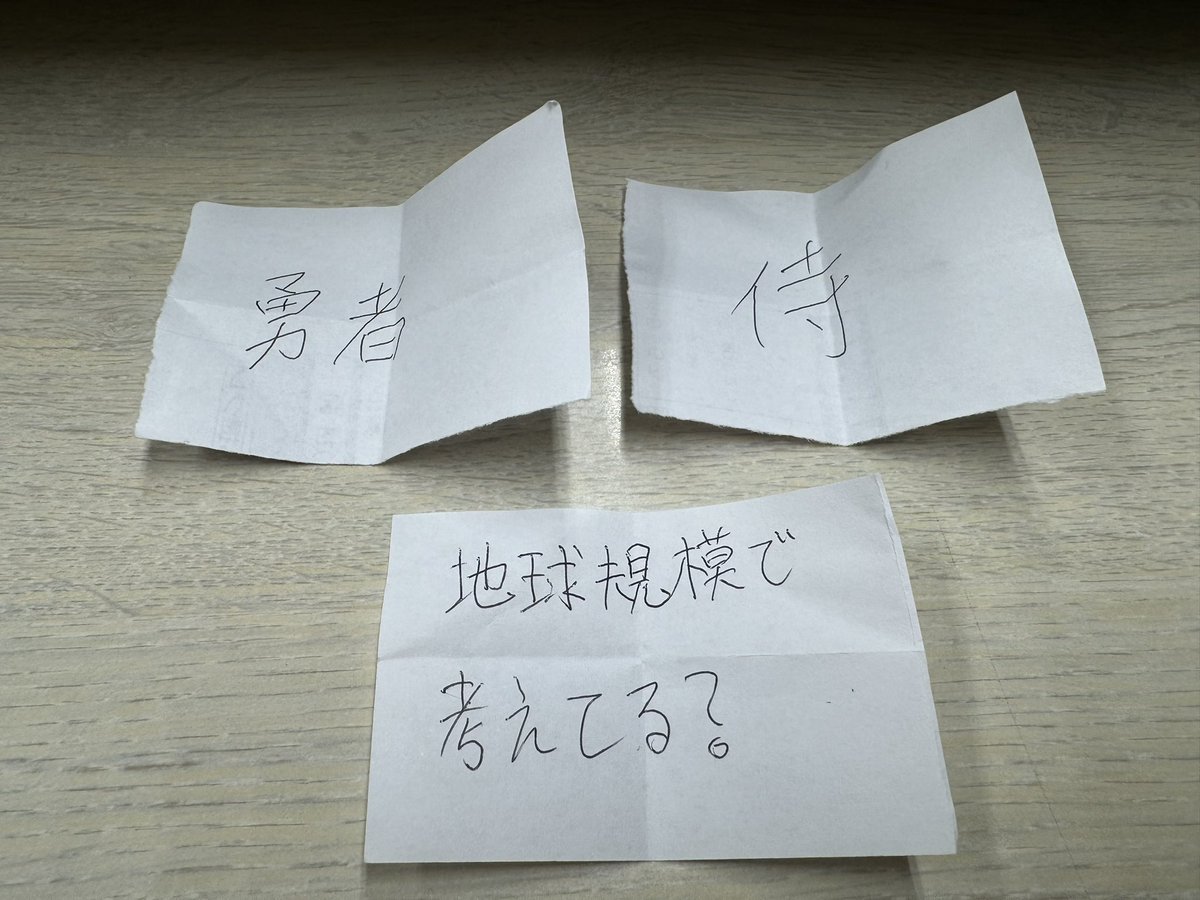 勇者
侍
地球規模で
考えてる?